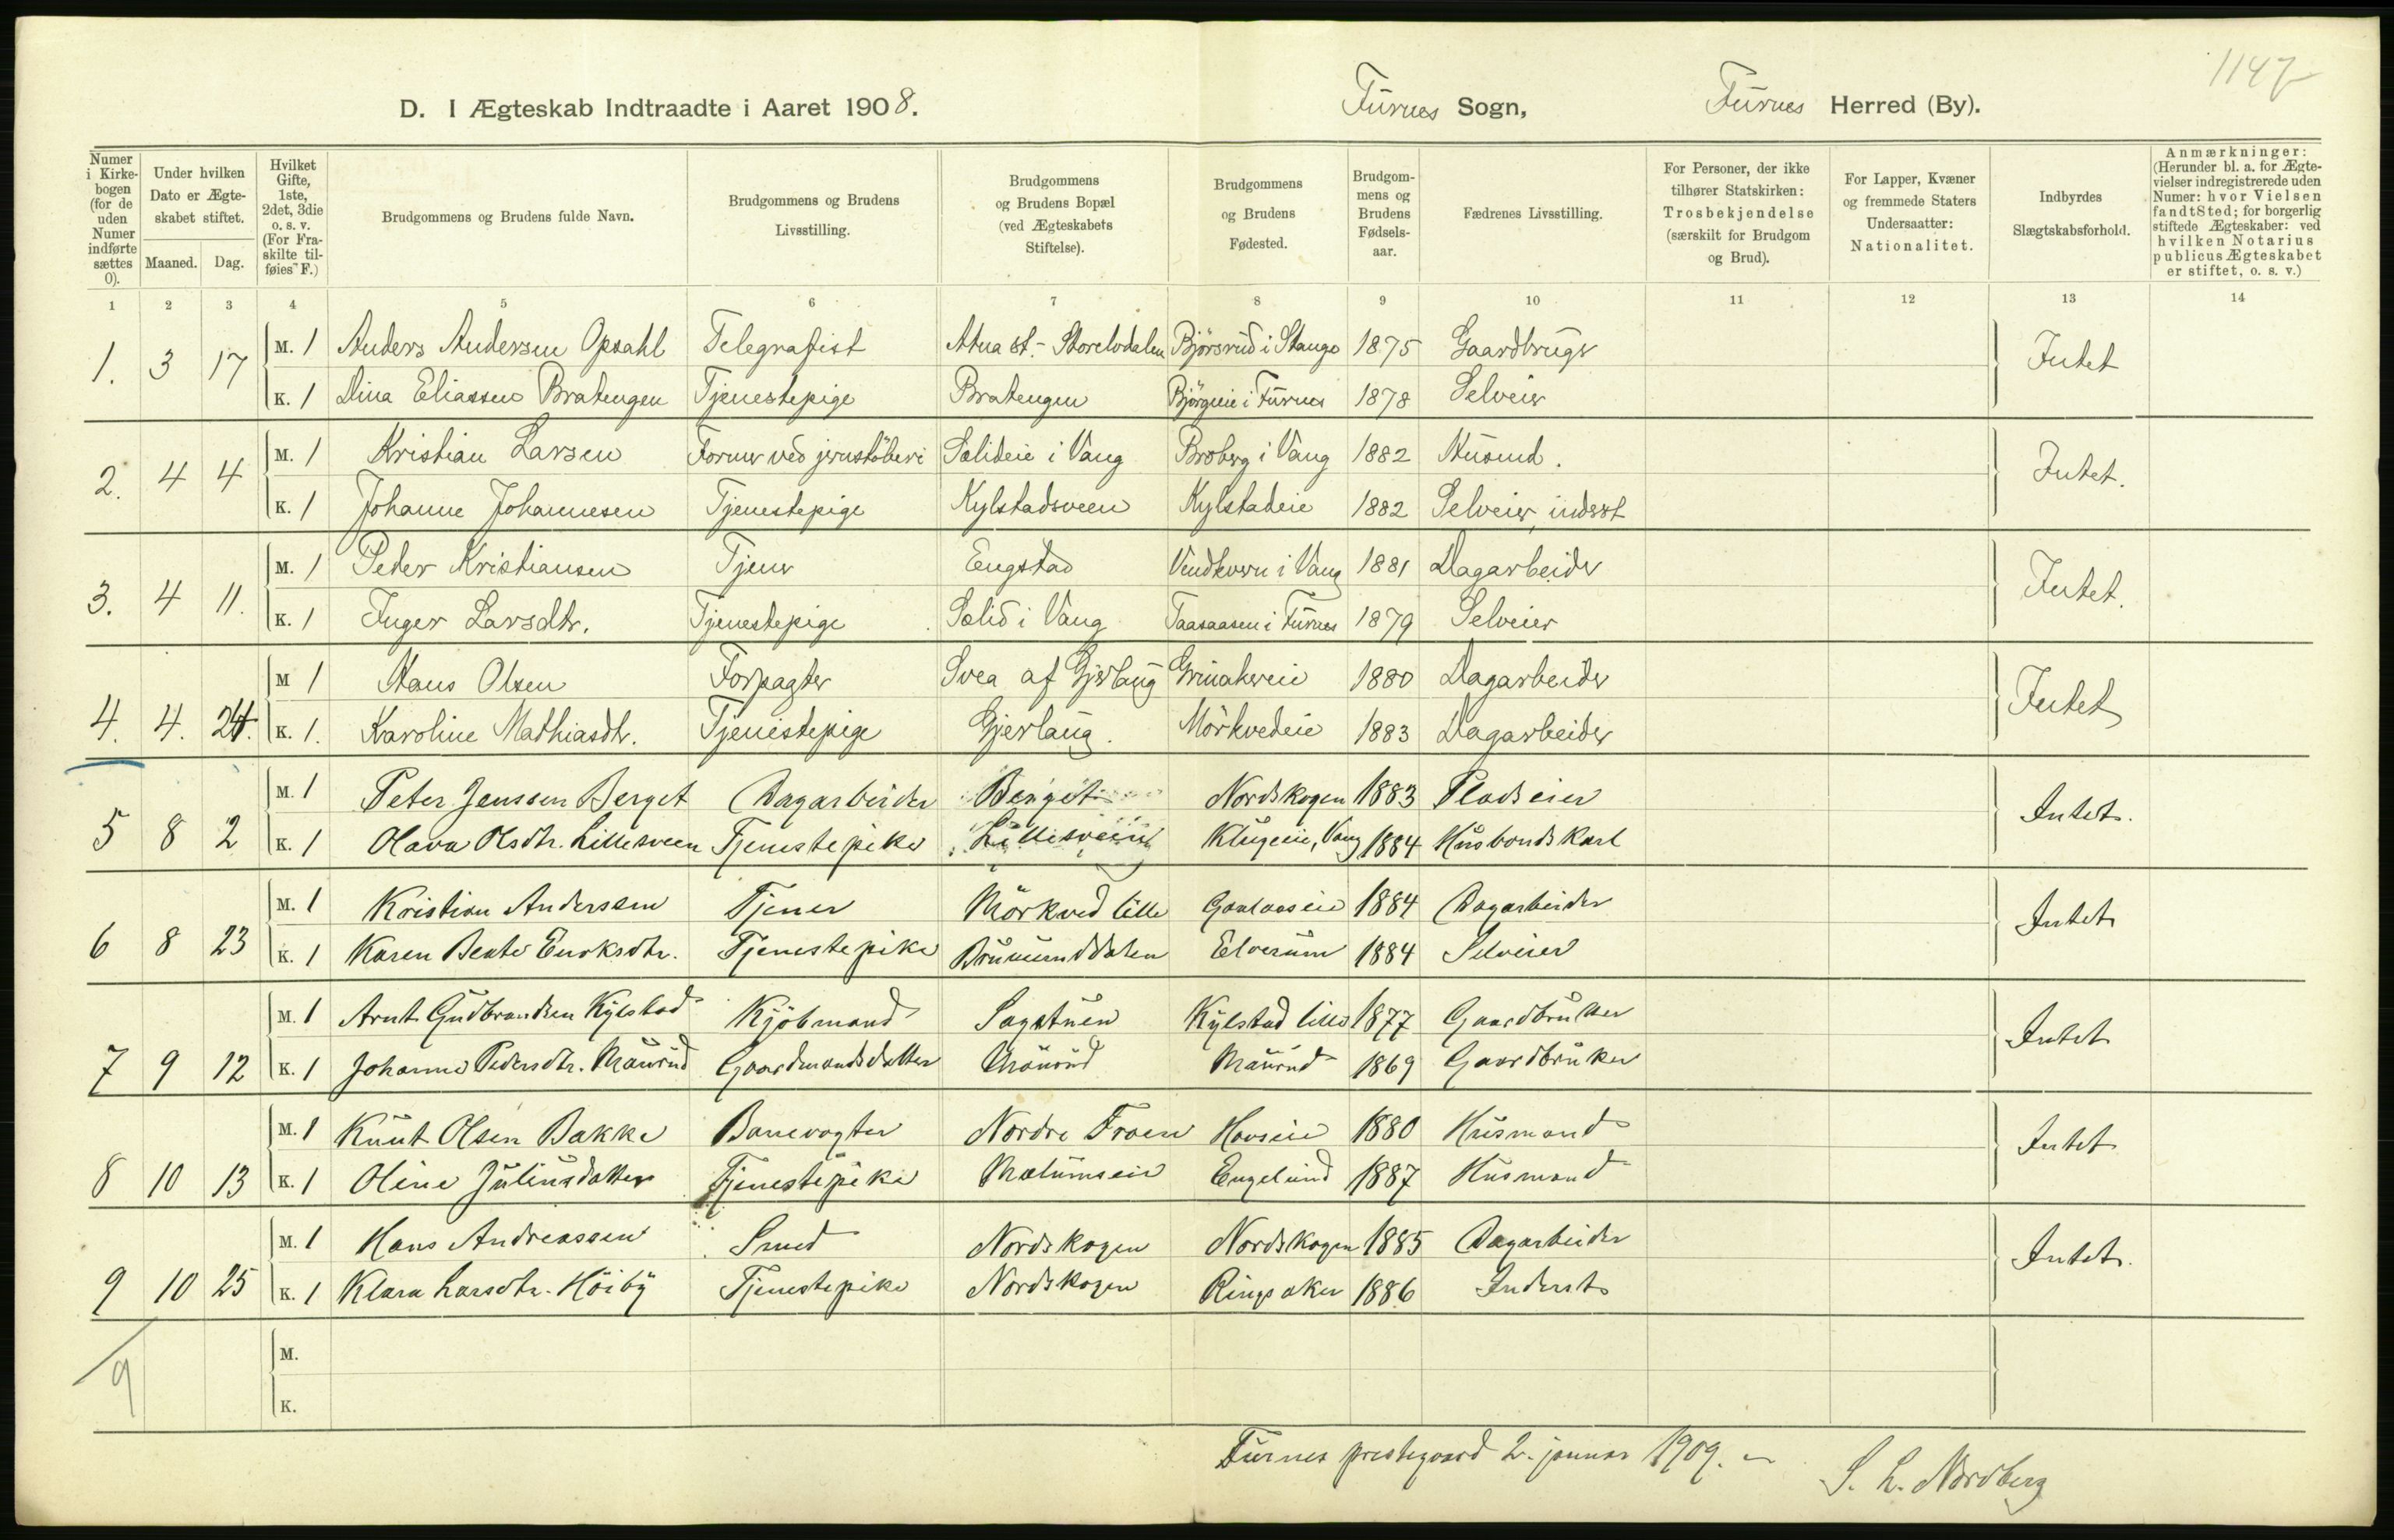 1147
D. I Ægteskab Indtraadte i Aaret 1908. Furnes Sogn, Furnes Herred (By).
Numer i Kirkebogen (for de uden Numer indførte sættes 0).
Under hvilken Dato er Ægteskabet stiftet.
Maaned. Dag.
Hvilket Gifte, 1ste, 2det, 3die o. s. v. (For Fraskilte tilføies „F.)
Brudgommens og Brudens fulde Navn.
Brudgommens og Brudens Livsstilling.
Brudgommens og Brudens Bopæl (ved Ægteskabets Stiftelse).
Brudgommens og Brudens Fødested.
Brudgommens og Brudens Fødselsaar.
Fædrenes Livsstilling.
For Personer, der ikke tilhører Statskirken: Trosbekjendelse (særskilt for Brudgom og Brud).
For Lapper, Kvæner og fremmede Staters Undersaatter: Nationalitet.
Indbyrdes Slægtskabsforhold.
Anmærkninger: (Herunder bl. a. for Ægtevielser indregistrerede uden Numer: hvor Vielsen fandt Sted; for borgerlig stiftede Ægteskaber: ved hvilken Notarius publicus Ægteskabet er stiftet, o. s. v.)
1 2 3 4 5 6 7 8 9 10 11 12 13 14
1. 3 17 M. 1 Anders Andersen Opsahl Telegrafist Atna st. - Storelvdalen Bjørsrud i Stange 1875 Gaardbruger Intet
K. 1 Dina Eliassen Bratengen Tjenestepige Bratengen i Furnes 1878 Selveier
2. 4 4 M. 1 Kristian Larsen Former ved jernstøberi Solideie i Vang Broberg i Vang 1882 Husmd. Intet.
K. 1 Johanne Johannesen Tjenestepige Kylstadsveen Kylstadeie 1882 Selveier, inderst
3. 4 11. M. 1 Peder Kristiansen Tjener Engstad Vendkvern i Vang 1881 Dagarbeider Intet.
K. 1 Inger Larsdtr. Tjenestepige Solid i Vang Taasaasen i Furnes 1879 Selveier
4. 4. 24. M 1 Hans Olsen Forpagter Svea af Gjerlaug Grinakereie 1880 Dagarbeider Intet
K. 1. Karoline Mathiasdtr. Tjenestepige Gjerlaug. Mörkvedeie 1883 Dagarbeider
5 8 2 M. 1 Peter Jenssen Berget Dagarbeider Berget Nordskogen 1883 Pladseier Intet.
K. 1 Olava Olsdtr. Lillesveen Tjenestepike Lillesveen Klugeeie, Vang 1884 Husbondskarl
6 8 23 M. 1 Kristian Anderssen Tjener Mörkved lille 1884 Dagarbeider Intet
K. 1 Karen Beate Enoksdtr. Tjenestepike Brumunddalen Elverum 1884 Selveier
7 9 12 M. 1 Arnt Gudbrandsen Kylstad Kjöbmand Sagstuen Kylstad lille 1877 Gaardbruker Intet
K. 1 Johanne Pedersdtr. Maurud Gaardmandsdatter Maurud Maurud 1869 Gaardbruker
8 10 13 M. 1 Knut Olsen Bakke Banevogter Nordre Froen Hovseie 1880 Husmand Intet
K. 1 Oline Juliusdatter Tjenestepike Mælumseie Engelund 1887 Husmand
9 10 25 M. 1 Hans Andreassen Smed Nordskogen Nordskogen 1885 Dagarbeider Intet.
K. 1 Klara Larsdtr. Höiby Tjenestepike Nordskogen Ringsaker 1886 Inderst
M.
9
K.
Furnes prestegaard 2. januar 1909. S. L. Nordberg